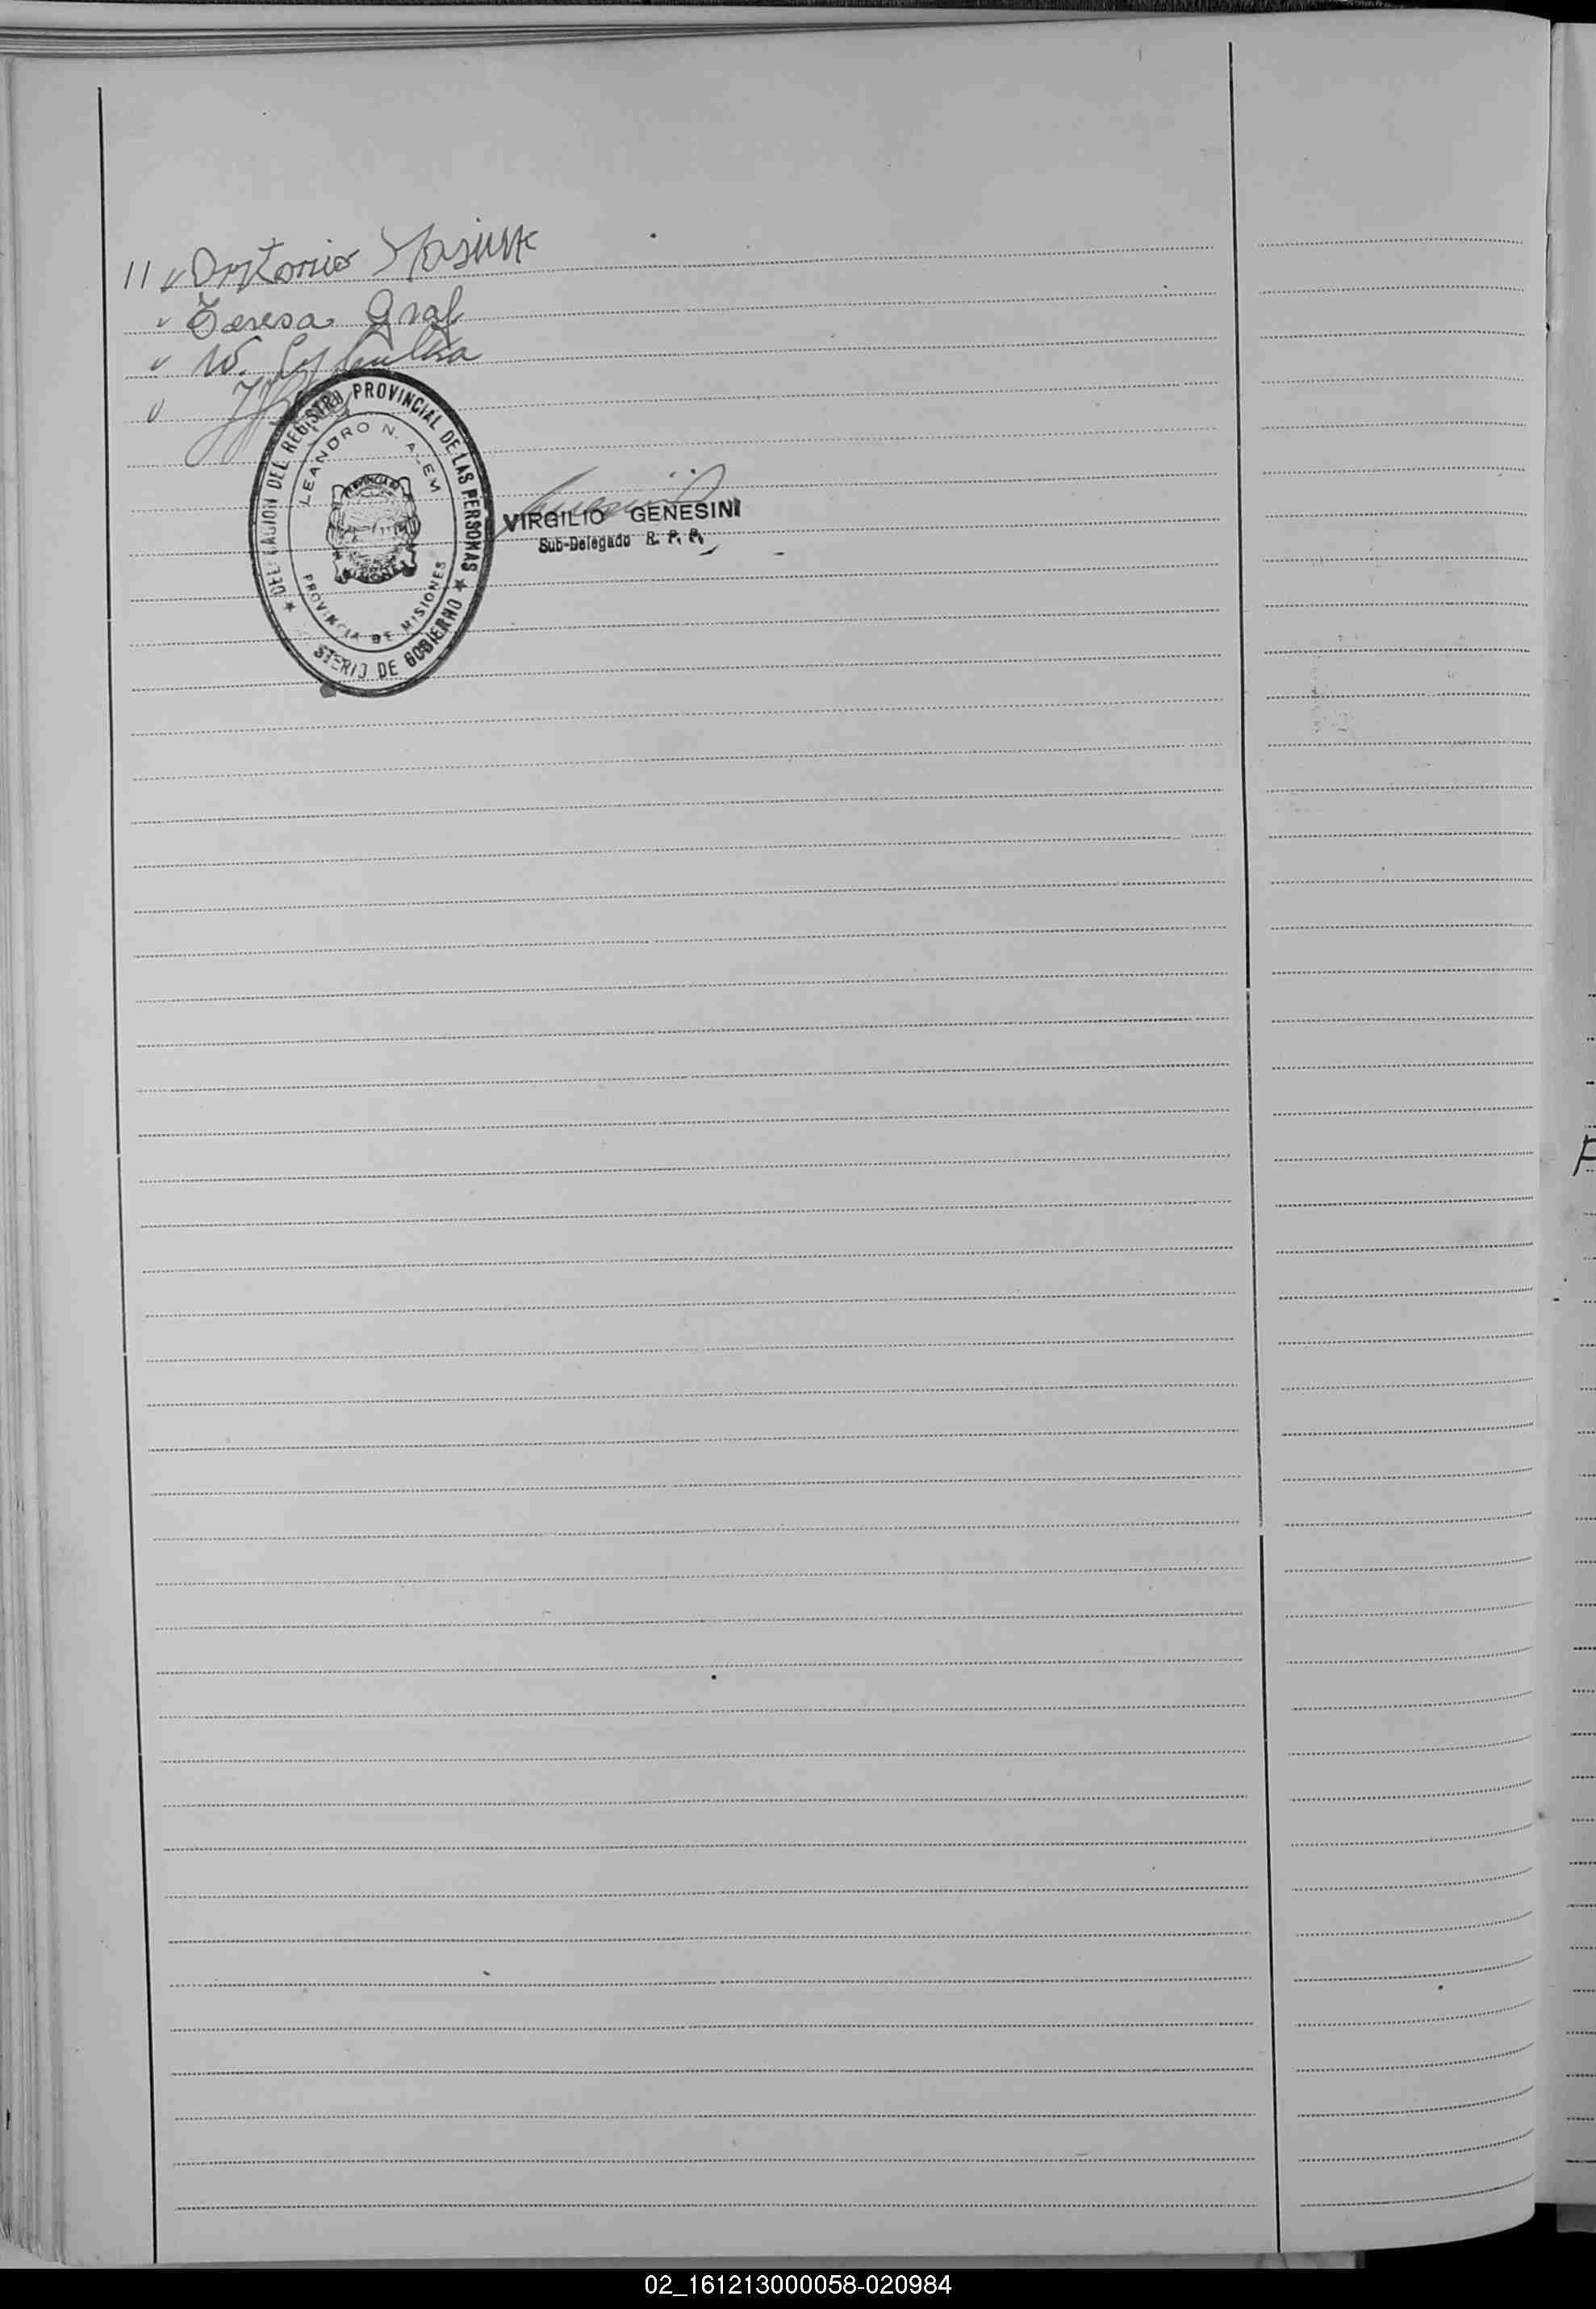 11 Antonio
Teresa Graf
W.
DELEGACION DEL REGISTRO PROVINCIAL DE LAS PERSONAS
LEANDRO N. ALEM
PROVINCIA DE MISIONES
STERIO DE GOBIERNO
VIRGILIO GENESINI
Sub-Delegado R. P. P.
02_161213000058-020984